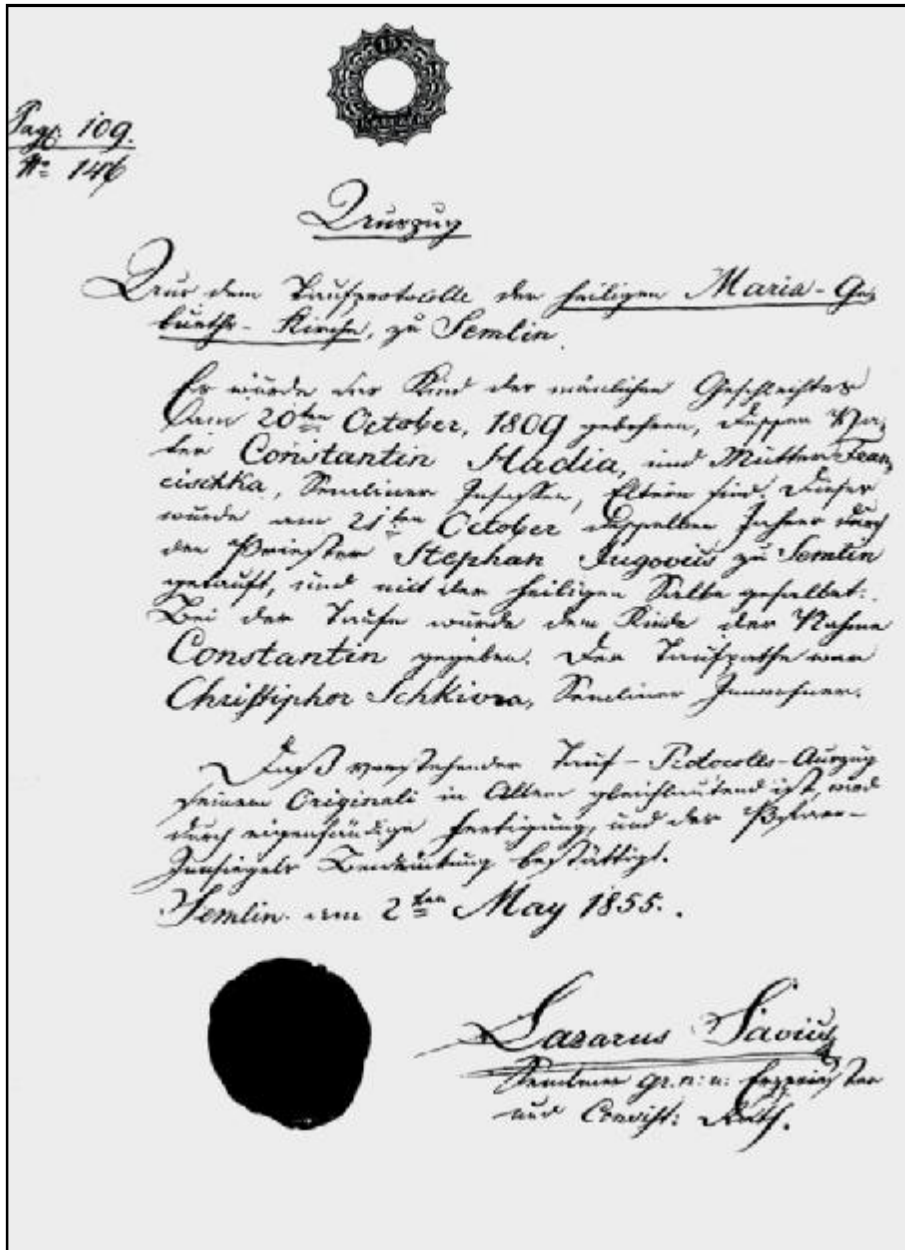 Pag: 109.
No 146
Auszug
Aus dem Taufprotocolle der heiligen Maria-Ge=
burths-Kirche, zu Semlin.
Es wurde das Kind des mänlichen Geschlechtes
am 20ten October, 1809 gebohren, dessen Va=
ter Constantin Hadia, und Mutter Fran=
cischka, Semliner Insassen, Eltern sind. Dieses
wurde am 21ten October desselben Jahres durch
den Priester Stephan zu Semlin
getauft, und mit der heiligen Salbe gesalbet.
Bei der Taufe wurde dem Kinde der Nahme
Constantin gegeben. Der Taufpathe war
Christiphor Schkivra, Semliner Innwohner.
Daß vorstehender Tauf-Protocolls-Auszug
seinem Originali in Allem gleichlautend ist, wird
durch eigenhändige Fertigung, und der Pfarr-
Innsiegels Bendrückung bestättigt.
Semlin am 2ten May 1855.
Lazarus
Semliner gr. n: u: Erzpriester
und Consist: Rath.